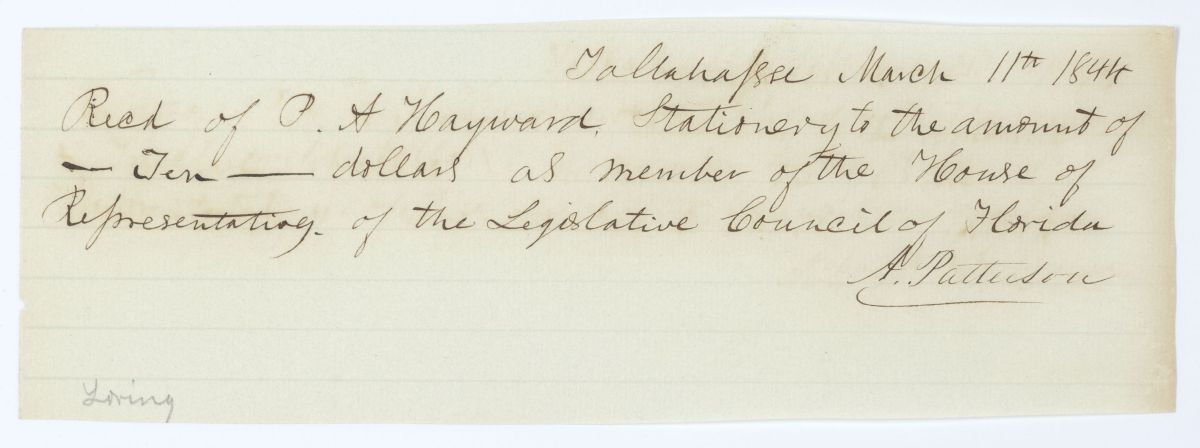 Tallahassee March 11th 1844
Recd of P. A Hayward. Stationery to the amount of
— Ten — dollars as member of the House of
Representatives. of the Legislative Council of Florida
A. Patterson
Loring